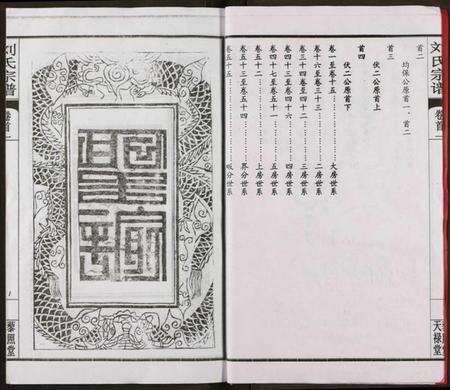 刘氏宗谱
卷首一
天禄堂
首二
均保公原首一、首二
首三
伏二公原首上
首四
伏二公原首下
卷一至卷十五……大房世系
卷十六至卷三十三……二房世系
卷三十四至卷四十二……三房世系
卷四十三至卷四十六……四房世系
卷四十七至卷五十一……五房世系
卷五十二……上房世系
卷五十三至卷五十四……界分世系
卷五十五……分世系
刘氏宗谱
卷首一
藜照堂